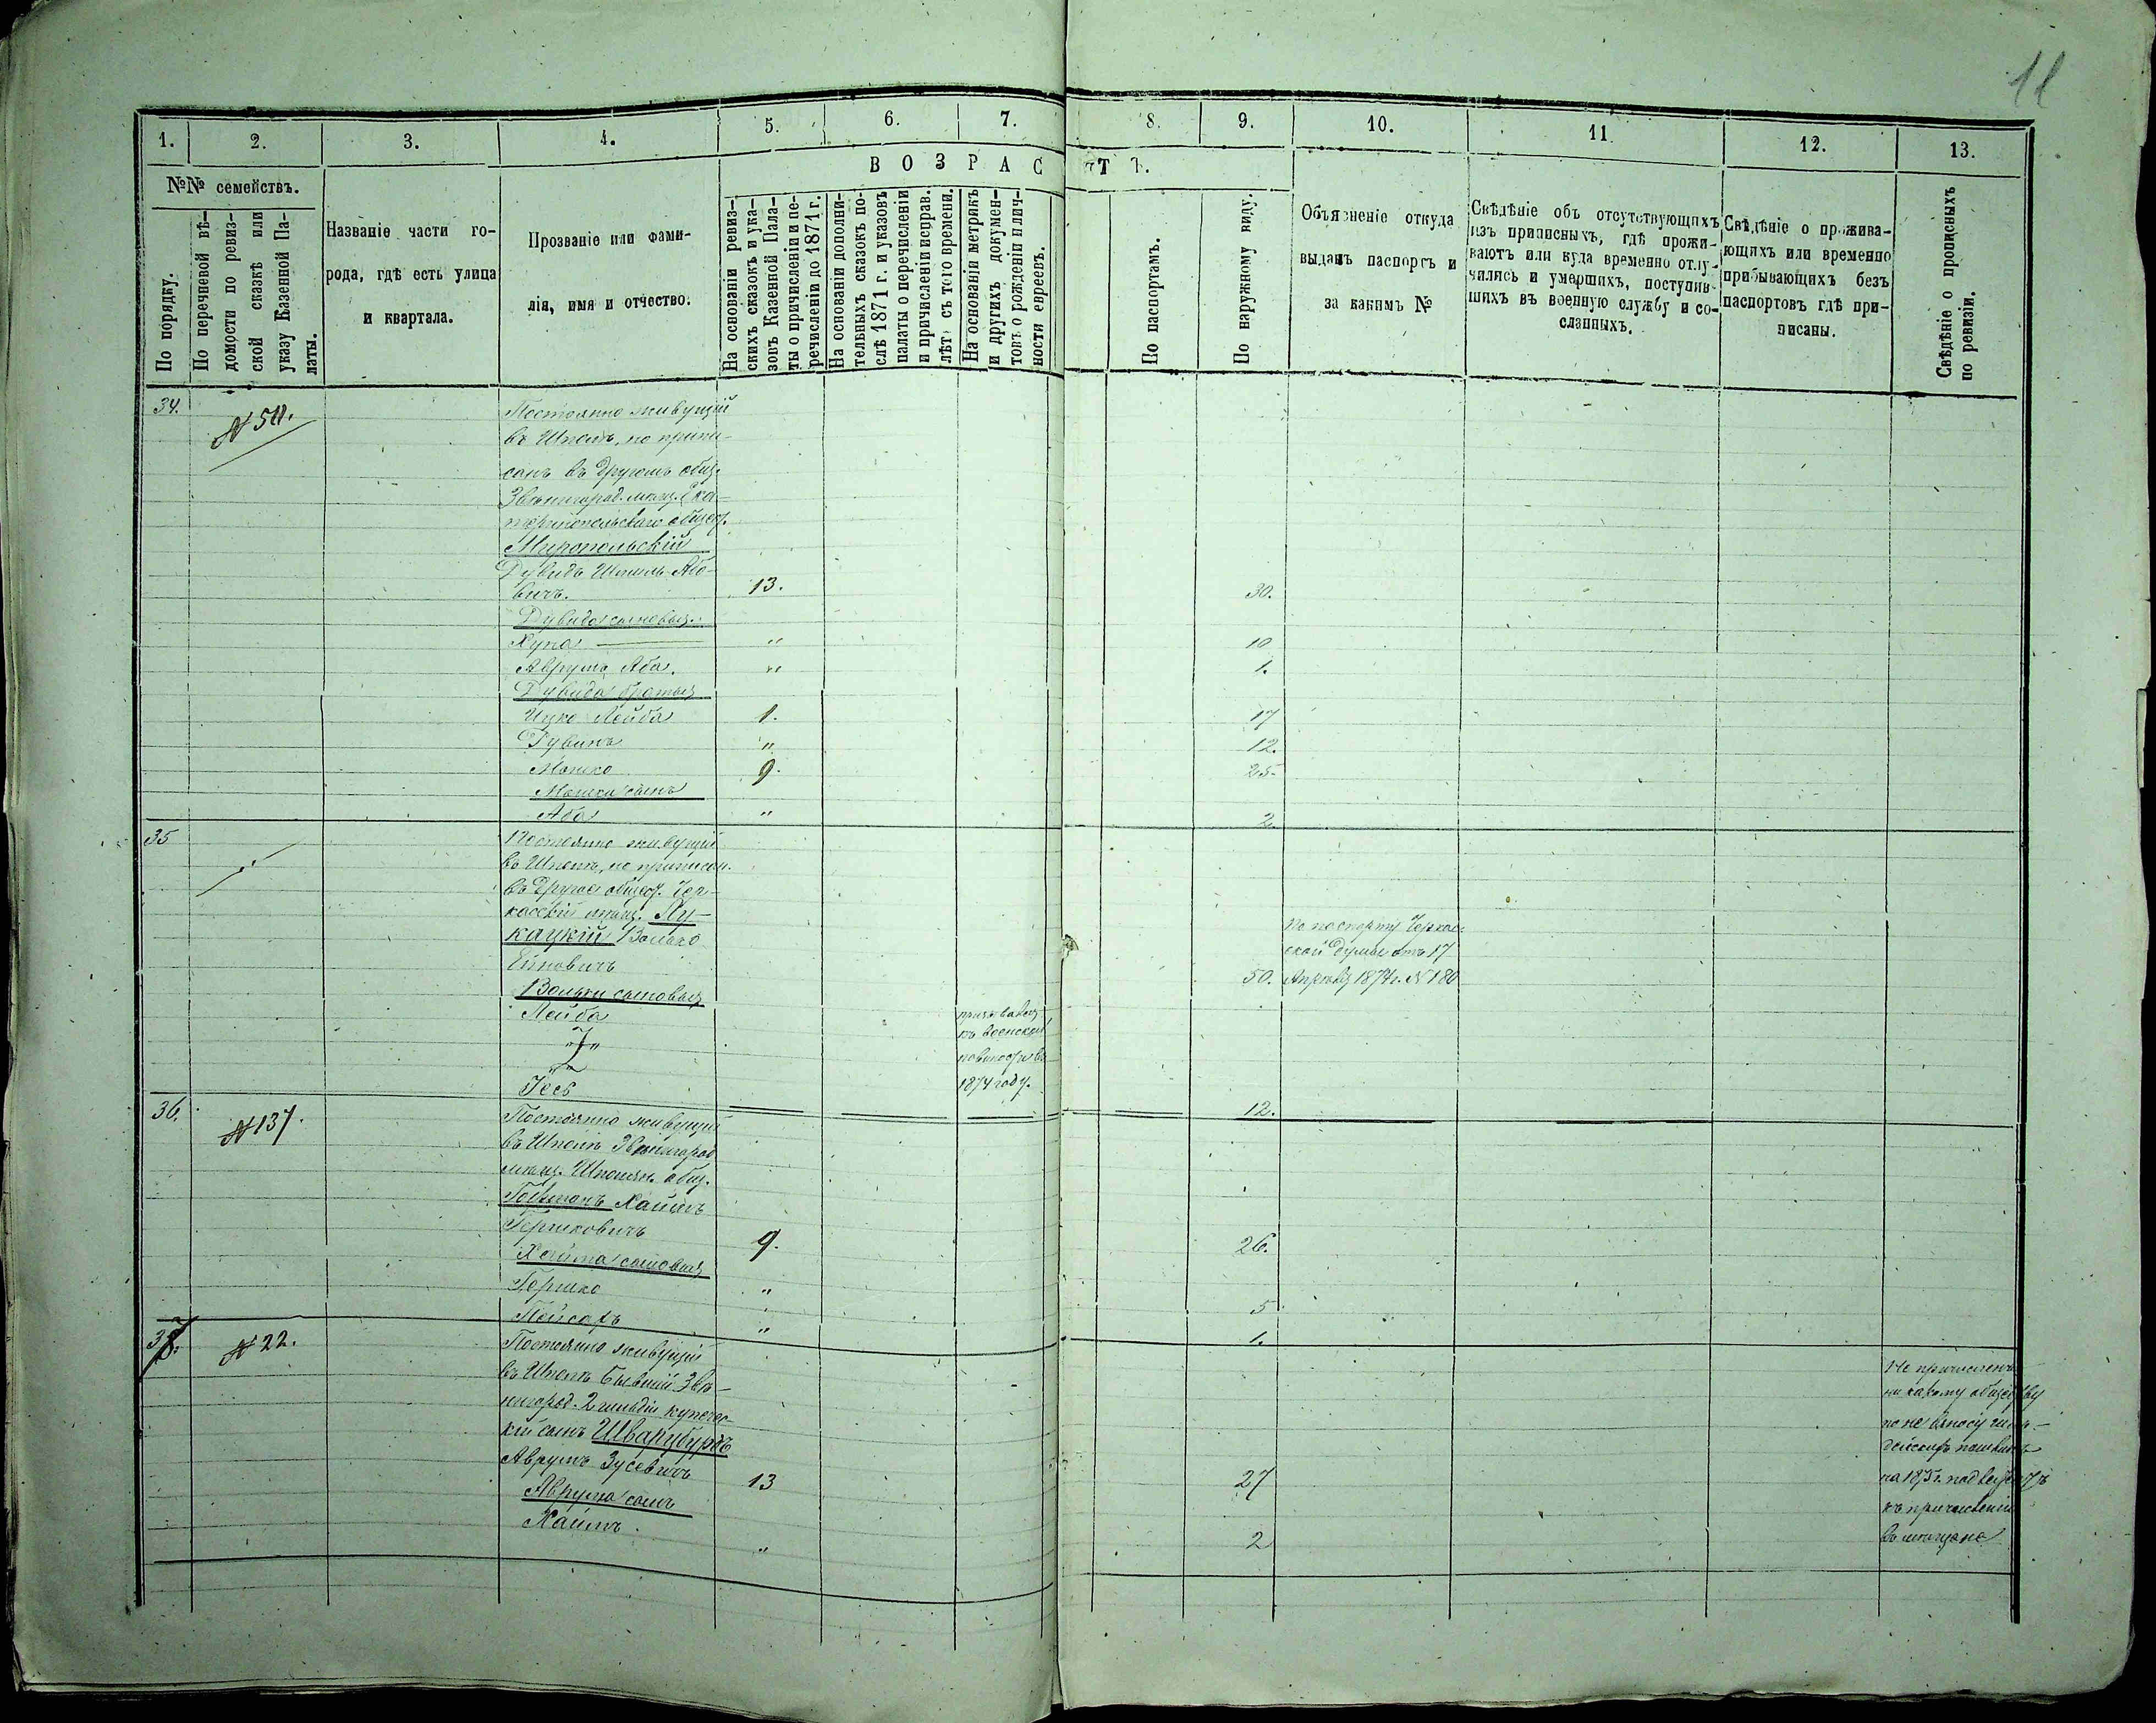 11
1. 2. 3. 4. 5. 6. 7. 8. 9. 10. 11. 12. 13.
ВОЗРАСТЪ.
№№ семействъ.
По порядку.
По перечневой вѣ-
домости по ревиз-
ской сказкѣ или
указу Казенной Па-
латы.
Названіе части го-
рода, гдѣ есть улица
и квартала.
Прозваніе или фами-
лія, имя и отчество.
На основаніи ревиз-
скихъ сказокъ и ука-
зовъ Казенной Пала-
ты о причисленіи и пе-
речисленіи до 1871 г.
На основаніи дополни-
тельныхъ сказокъ по-
слѣ 1871 г. и указовъ
палаты о перечисленіи
и причисленіи исправ.
лѣтъ съ того времени.
На основаніи метрикъ
и другихъ докумен-
товъ о рожденіи и лич-
ности евреевъ.
По паспортамъ.
По наружному виду.
Объясненіе откуда
выданъ паспортъ и
за какимъ №
Свѣдѣніе объ отсутствующихъ
изъ приписныхъ, гдѣ прожи-
ваютъ или куда временно отлу-
чились и умершихъ, поступив-
шихъ въ военную службу и со-
сланныхъ.
Свѣдѣніе о прожива-
ющихъ или временно
прибывающихъ безъ
паспортовъ гдѣ при-
писаны.
Свѣдѣніе о прописныхъ
по ревизіи.
34.
Постоянно живущій
въ Шполѣ, но припи-
санъ въ другомъ общ.
Звенигород. мѣщ. Ека-
теринопольскаго общест.
Миропольскій
Дувидъ Шмиль Або-
вичъ. 13. 30.
Дувида сыновья.
Хуна " 10
Аврумъ Аба. " 1.
Дувида братья
Ицко Лейба 1. 17
Рувинъ " 12.
Мошко 9. 25.
Мошки сынъ
Аба " 2.
35
Постоянно живущій
въ Шполѣ, но приписан.
въ другое общест. Чер-
касскій мѣщ. Лу-
кацкій Волько
50.
По паспорту Черкас-
ской думы отъ 17
Апрѣля 1874 г. № 180
Вольки сыновья
Лейба
къ воинской
1874 году.
12.
36. № 137.
Постоянно живущій
въ Шполѣ Звенигород
мѣщ. Шполян. общ.
Гофманъ Хаимъ
Гершковичъ 9. 26.
Хаима сыновья
Гершко " 5
Пейсахъ " 1.
37. № 22.
Постоянно живущій
въ Шполѣ бывшій Зве-
нигород. 2 гильдіи купечес-
кій сынъ Шварцбурдъ
Аврумъ Зусевичъ 13 27
Аврума сынъ
Хаимъ. " 2
Не причисленъ
къ причисленію
въ мѣщане